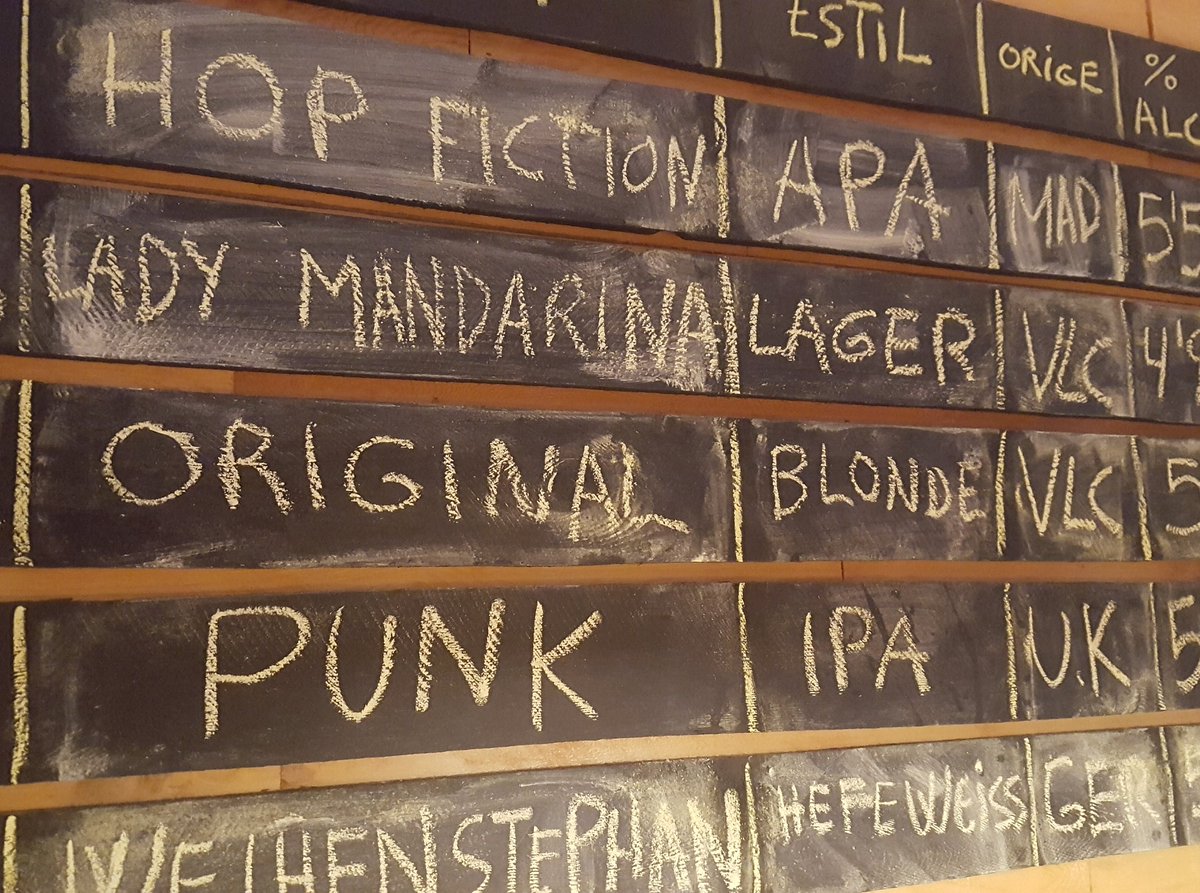 ESTIL ORIGE % ALC
HOP FICTION APA MAD 5'5
LADY MANDARINA LAGER VLC 4'9
ORIGINAL BLONDE VLC 5
PUNK IPA U.K 5
WEIHENSTEPHAN HEFEWEISS GER